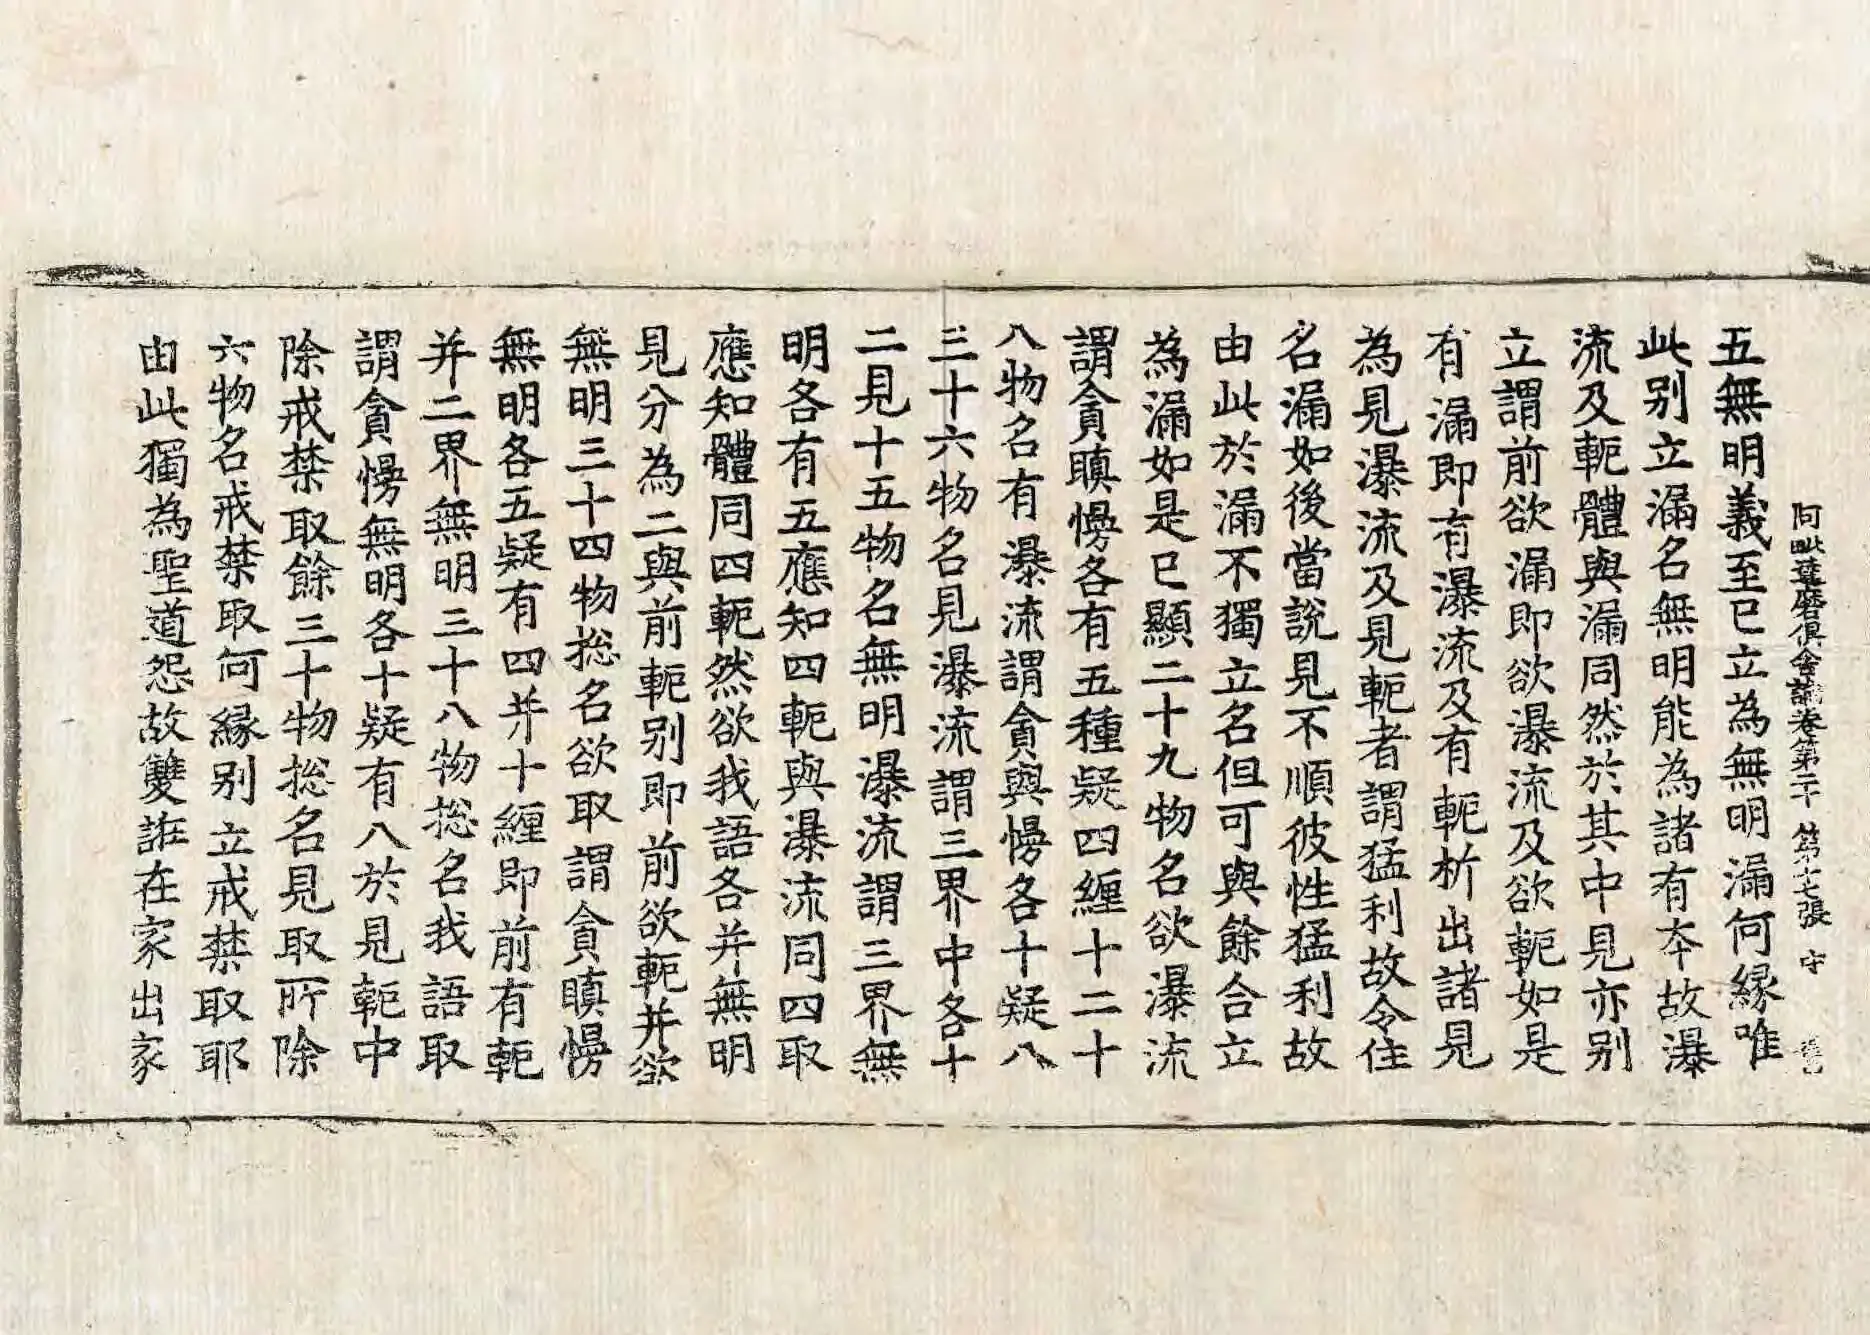 阿毗達磨俱舍論卷第二十 第十七張 守
五無明義至已立為無明漏何緣唯
此別立漏名無明能為諸有本故瀑
流及軛體與漏同然於其中見亦別
立謂前欲漏即欲瀑流及欲軛如是
有漏即有瀑流及有軛析出諸見
為見瀑流及見軛者謂猛利故令住
名漏如後當說見不順彼性猛利故
由此於漏不獨立名但可與餘合立
為漏如是已顯二十九物名欲瀑流
謂貪瞋慢各有五種疑四纏十二十
八物名有瀑流謂貪與慢各十疑八
三十六物名見瀑流謂三界中各十
二見十五物名無明瀑流謂三界無
明各有五應知四軛與瀑流同四取
應知體同四軛然欲我語各并無明
見分為二與前軛別即前欲軛并欲
無明三十四物揔名欲取謂貪瞋慢
無明各五疑有四并十纏即前有軛
并二界無明三十八物揔名我語取
謂貪慢無明各十疑有八於見軛中
除戒禁取餘三十物揔名見取所除
六物名戒禁取何緣別立戒禁取耶
由此獨為聖道怨故雙誑在家出家